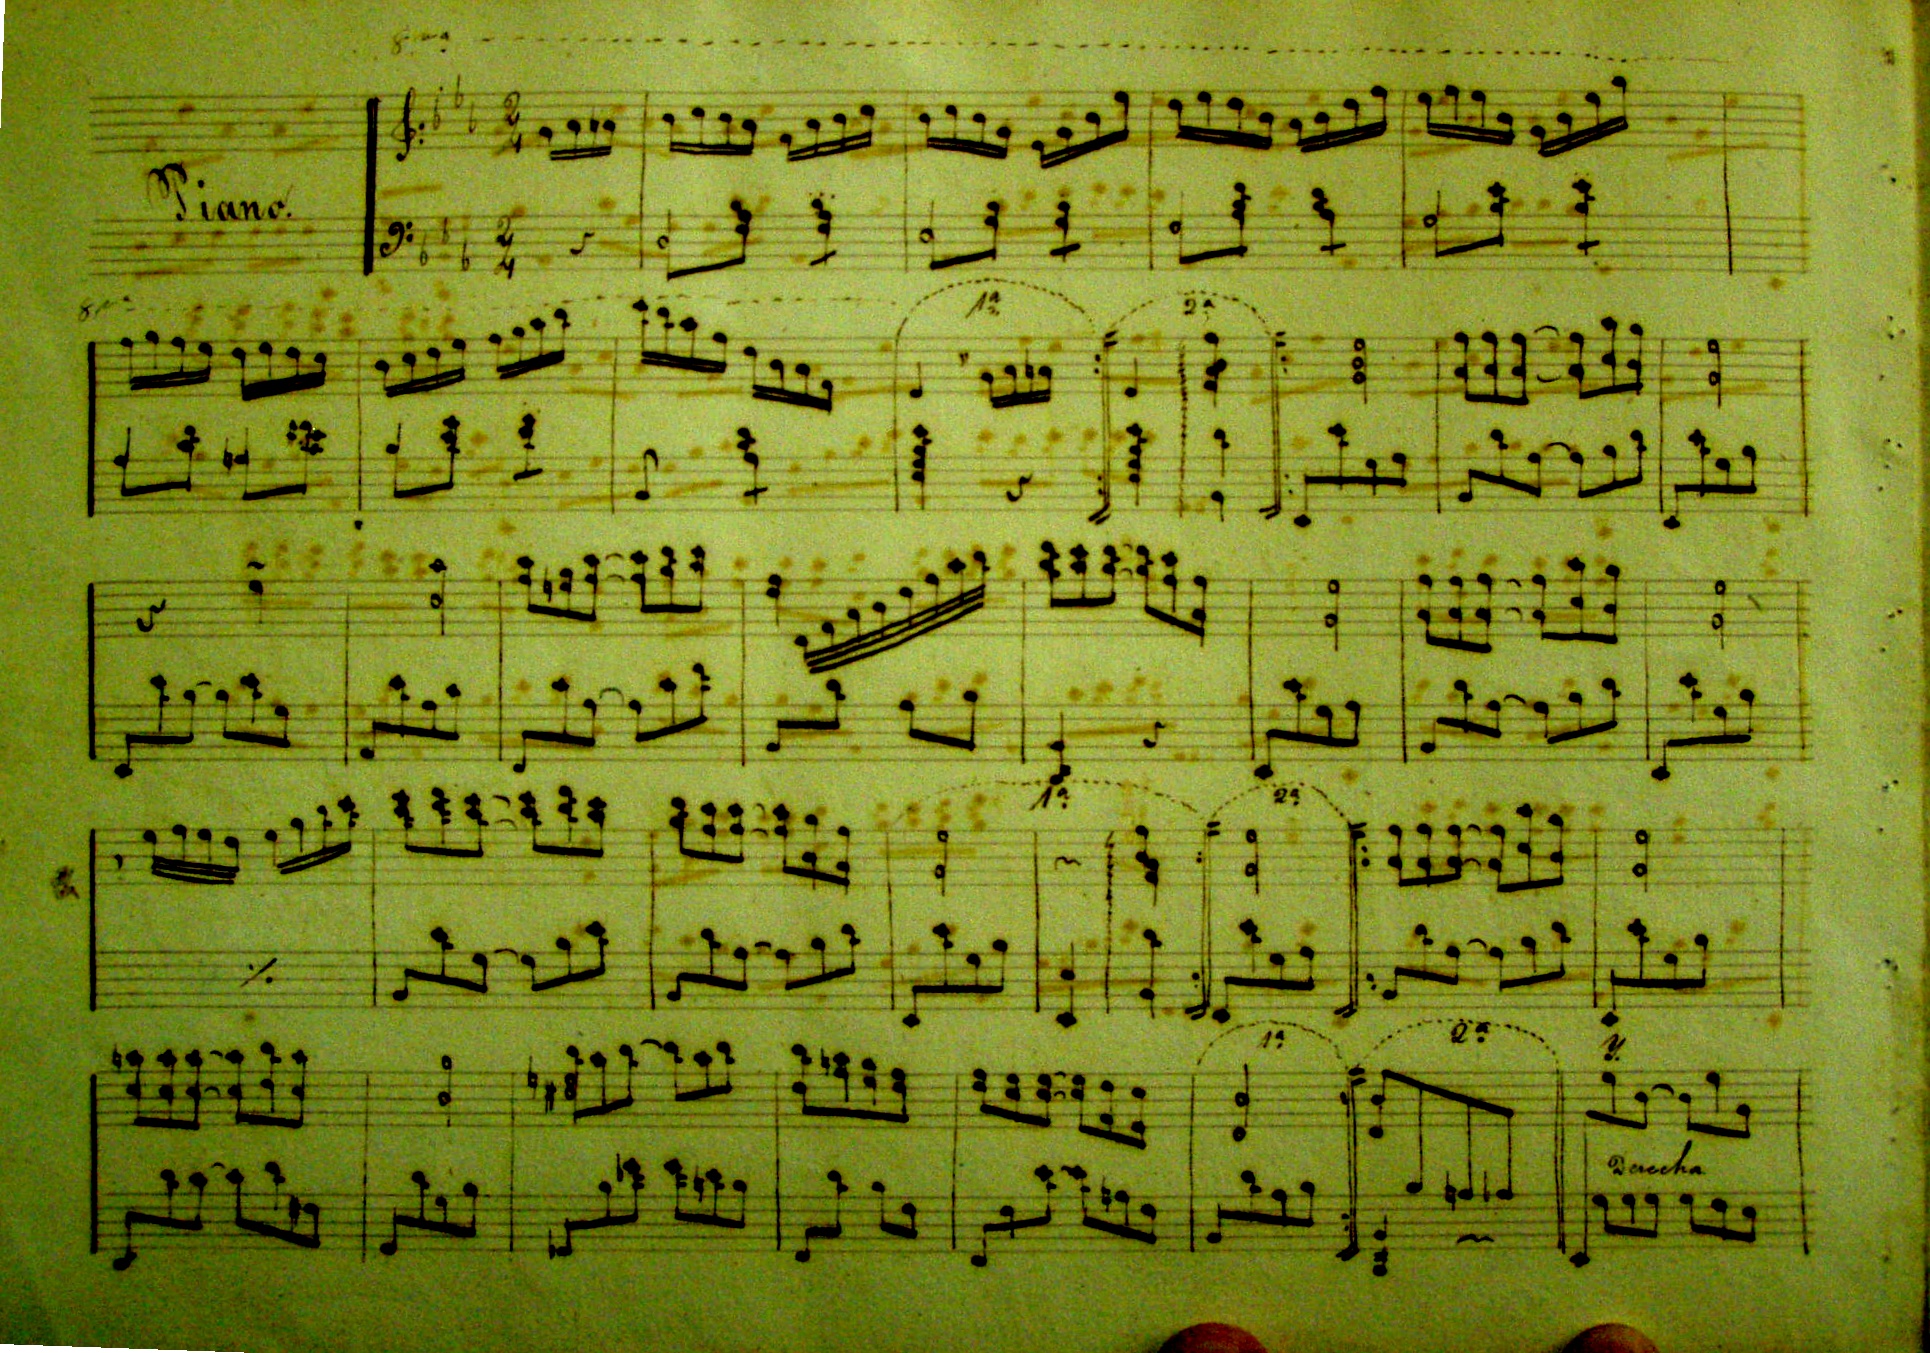 8va
Piano.
2
4
2
4
8va
1ª
2ª
1ª
2ª
1ª
2ª
Derecha